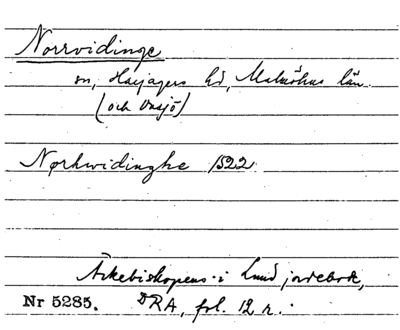 Norrvidinge
sn, Harjagers hd, Malmöhus län.
(och Onsjö)
Nørhwidinghe 1522
Ärkebiskopens i Lund jordebok,
Nr 5285. DRA, fol. 12 r.